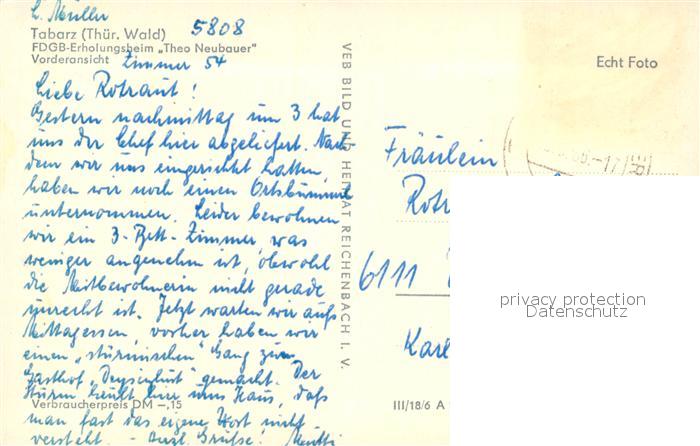 L. Müller
Tabarz (Thür. Wald) 5808
FDGB-Erholungsheim „Theo Neubauer"
Vorderansicht Zimmer 54
Liebe Rotraut!
Gestern nachmittag um 3 hat
uns der Chef hier abgeliefert. Nach-
dem wir uns eingerichtet hatten,
haben wir noch einen Ortsbummel
unternommen. Leider bewohnen
wir ein 3-Bett-Zimmer, was
weniger angenehm ist, obwohl
die Mitbewohnerin nicht gerade
unrecht ist. Jetzt warten wir aufs
Mittagessen, vorher haben wir
einen „stürmischen" Gang zum
Gasthof gemacht. Der
Sturm heult hier ums Haus, daß
Verbraucherpreis DM –,15
man fast das eigene Wort nicht
versteht. – Herzl. Grüße! Mutti
VEB BILD UND HEIMAT REICHENBACH I. V.
Echt Foto
Fräulein
Rotr
6111
Karl
III/18/6 A
privacy protection
Datenschutz